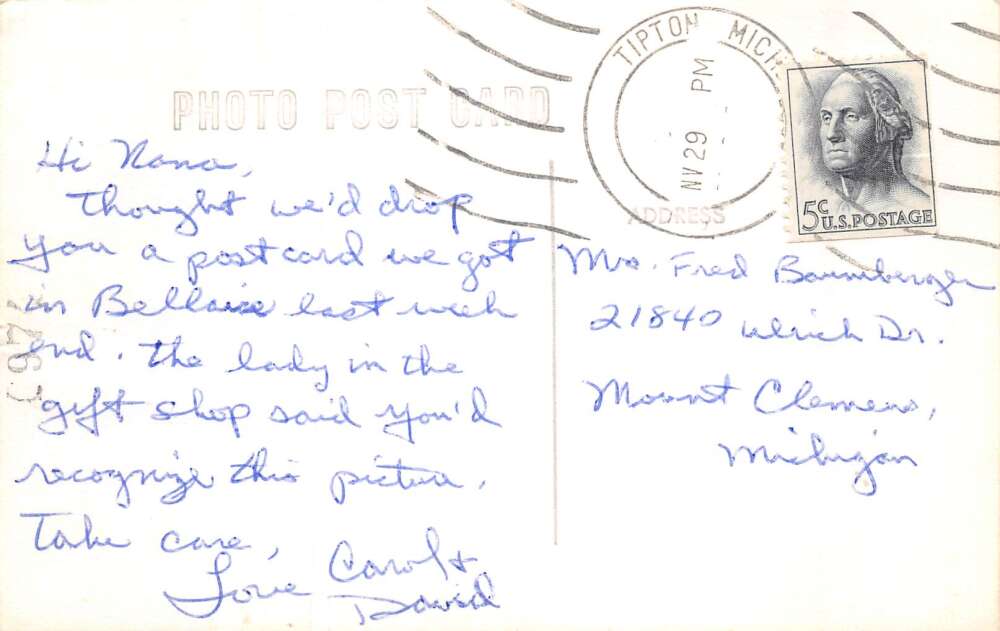 TIPTON MICH.
NV 29 PM
PHOTO POST CARD
ADDRESS
5c
U.S. POSTAGE
Hi Nana,
Thought we'd drop
you a postcard we got
in Bellaire last week
end. The lady in the
gift shop said you'd
recognize this picture.
Take care,
Love Carol &
David
Mrs. Fred Baumberger
21840 Ulrich Dr.
Mount Clemens,
Michigan